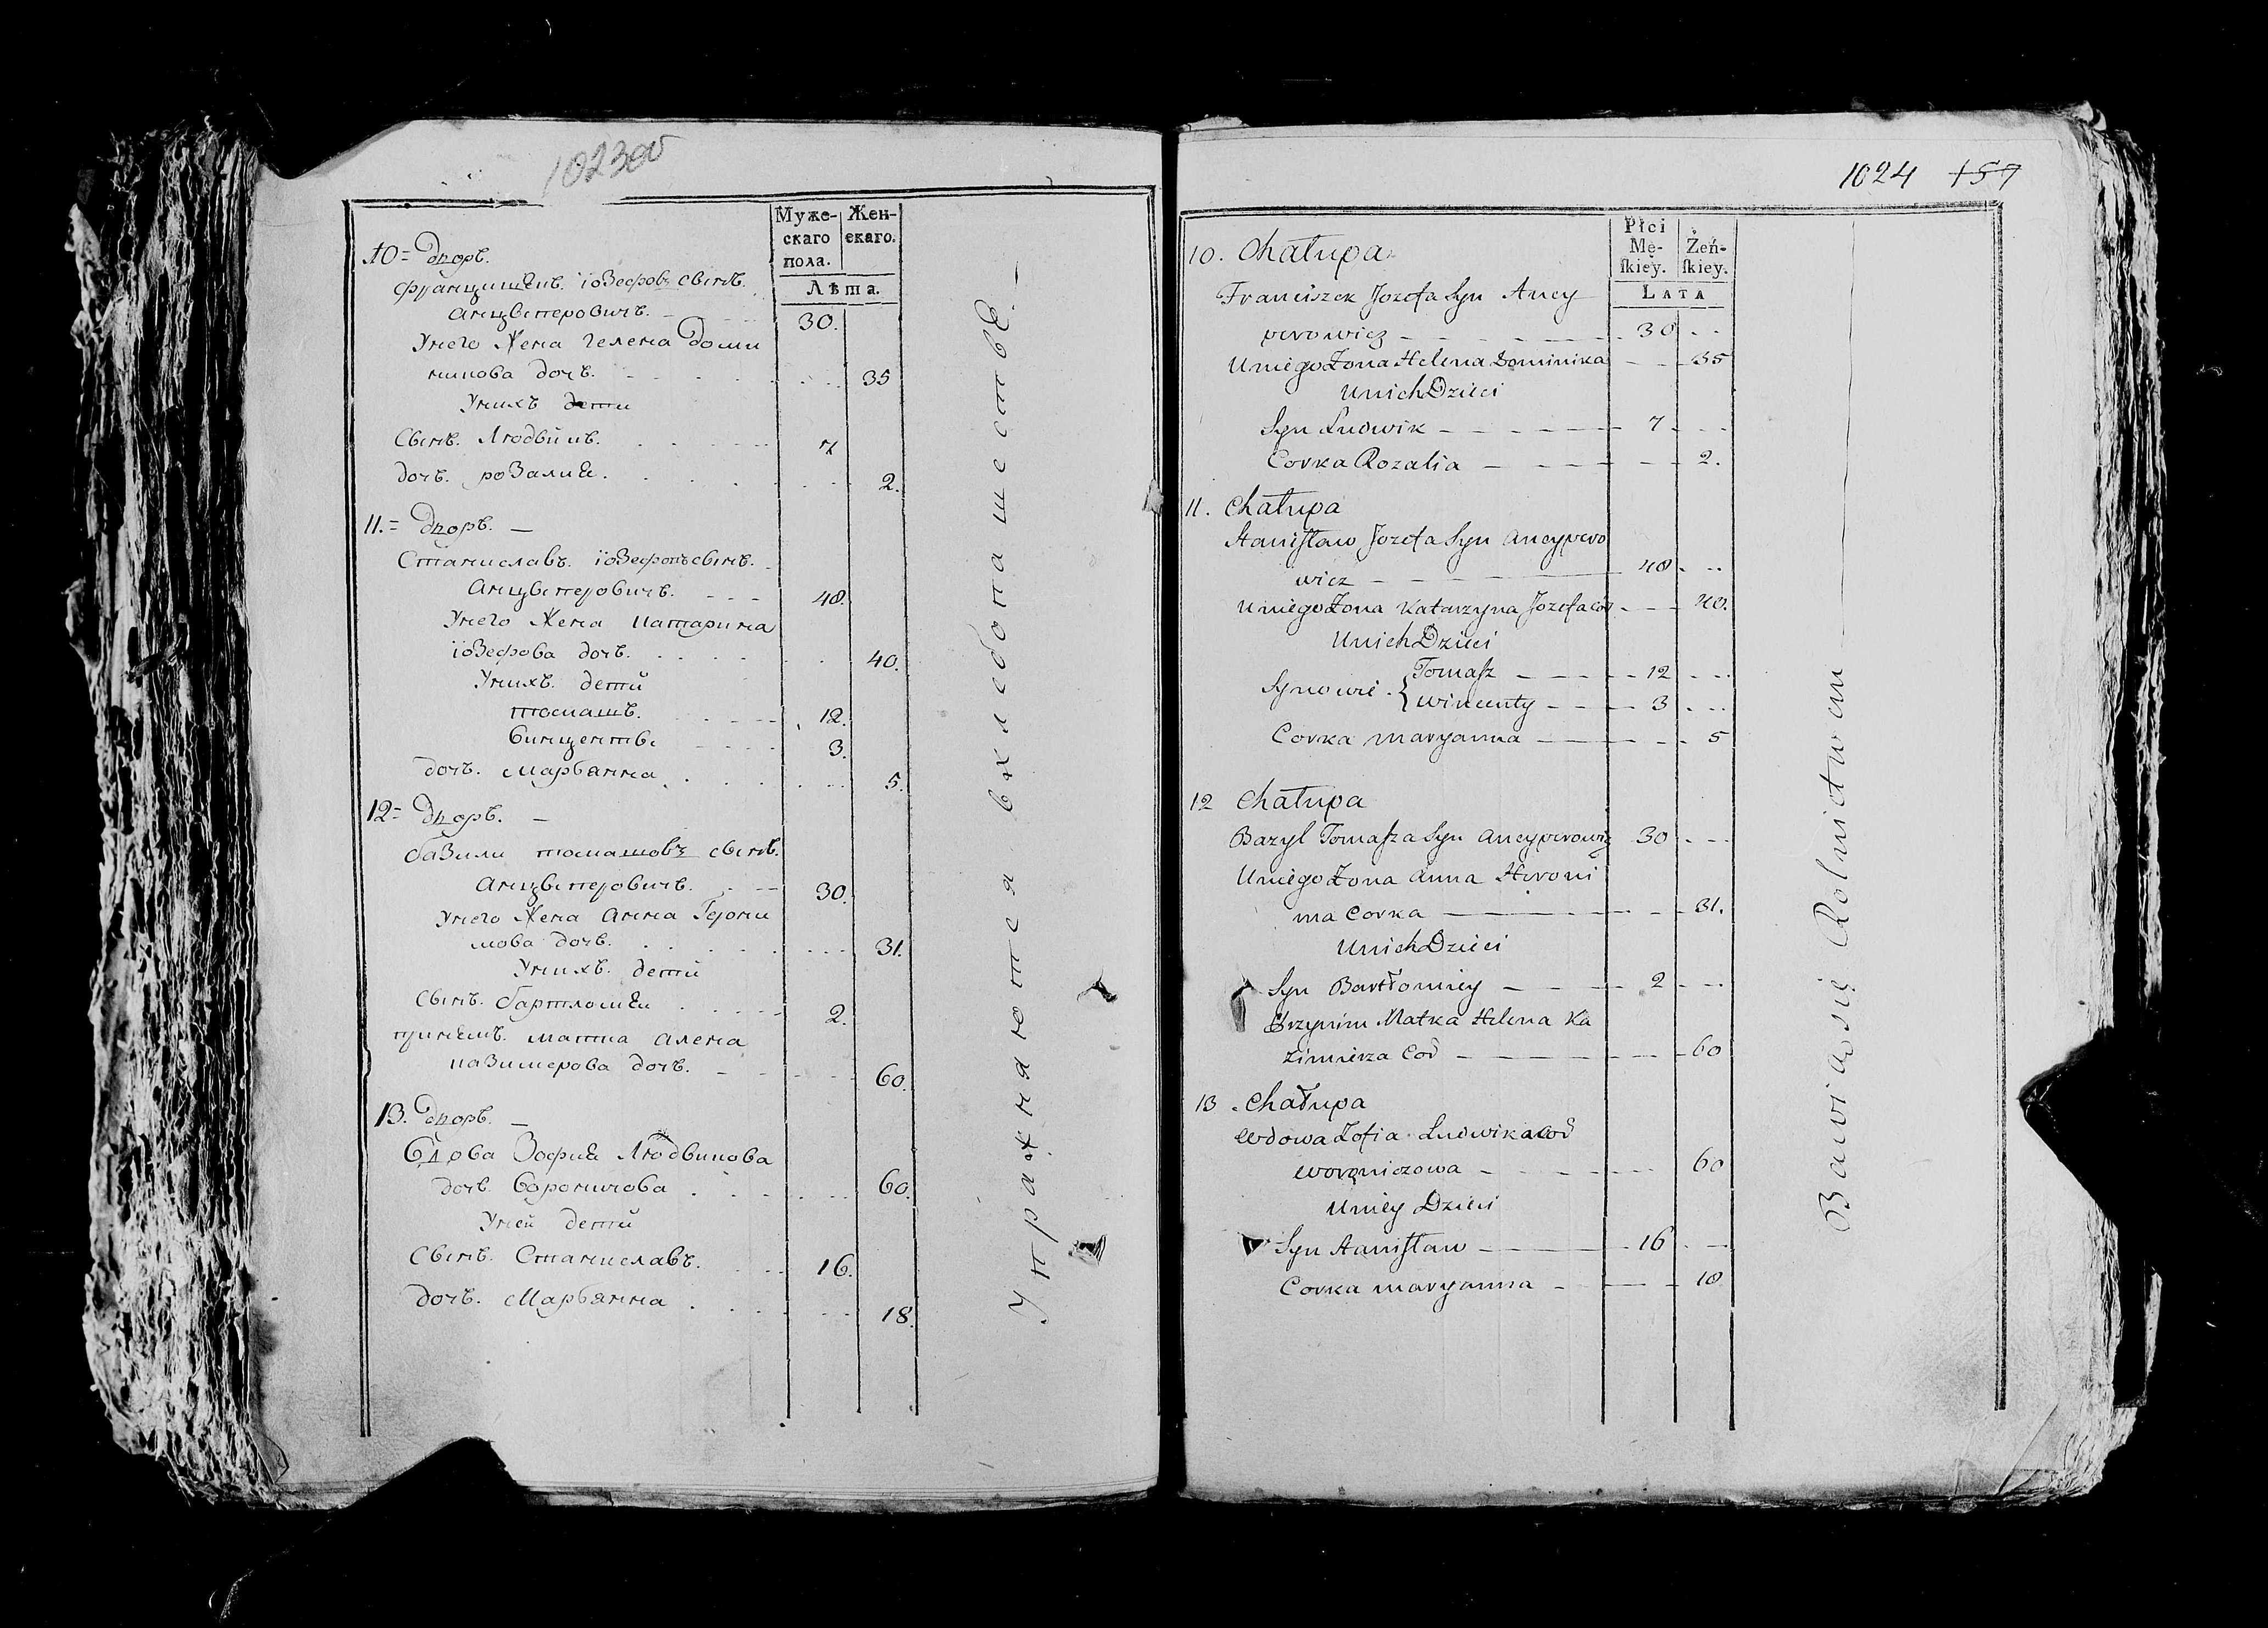 1023об
Муже-
скаго
пола.
Жен-
скаго.
Лѣта.
10= Дворъ.
Францишекъ іозефовъ сынъ
Анцыперовичъ. 30.
Унего Жена гелена доми
никова дочь. 35
Унихъ дети
Сынъ. Людвикъ. 7
дочь. розалия. 2.
11.= Дворъ. —
Станиславъ. іозефовъ сынъ.
Анцыперовичъ. 48.
Унего Жена катарина
іозефова дочь. 40.
Унихъ. дети
томашъ. 12.
винценты 3.
дочь. марьянна 5.
12= Дворъ. —
базили томашовъ сынъ.
Анцыперовичъ. 30.
Унего Жена Анна Герони
мова дочь. 31.
Унихъ. дети
Сынъ. бартломеи 2.
принемъ. матка алена
казимерова дочь. 60.
13. Дворъ. —
Вдова Зофия Людвикова
дочь. Вороничова 60.
Уней дети
Сынъ. Станиславъ. 16.
дочь. Марьянна 18.
Упражняются вхлебопашествѣ. —
1024 157
Płci
Mę-
ſkiey.
Żeń-
ſkiey.
LATA
10. Chałupa
Franciszek Jozefa Syn Ancy
perowicz 30
Uniego Żona Helena Dominika 35
Unich Dzieci
Syn Ludwik 7
Corka Rozalia 2.
11. Chałupa
Staniſław Jozefa Syn Ancypero
wicz 48
Uniego Żona Katarzyna Jozefa cór 40.
Unich Dzieci
Synowie { Tomaſz 12
Wincenty 3
Corka Maryanna 5
12 Chałupa
Bazyl Tomaſza Syn Ancyperowicz 30
Uniego Żona Anna Hieroni
ma Corka 31.
Unich Dzieci
Syn Bartłomiey 2
Przynim Matka Helena Ka
zimierza Cor 60
13. Chałupa
Wdowa Zofia Ludwika cor
Woroniczowa 60
Uniey Dzieci
Syn Staniſław 16
Corka Maryanna 18
Bawią się Rolnictwem